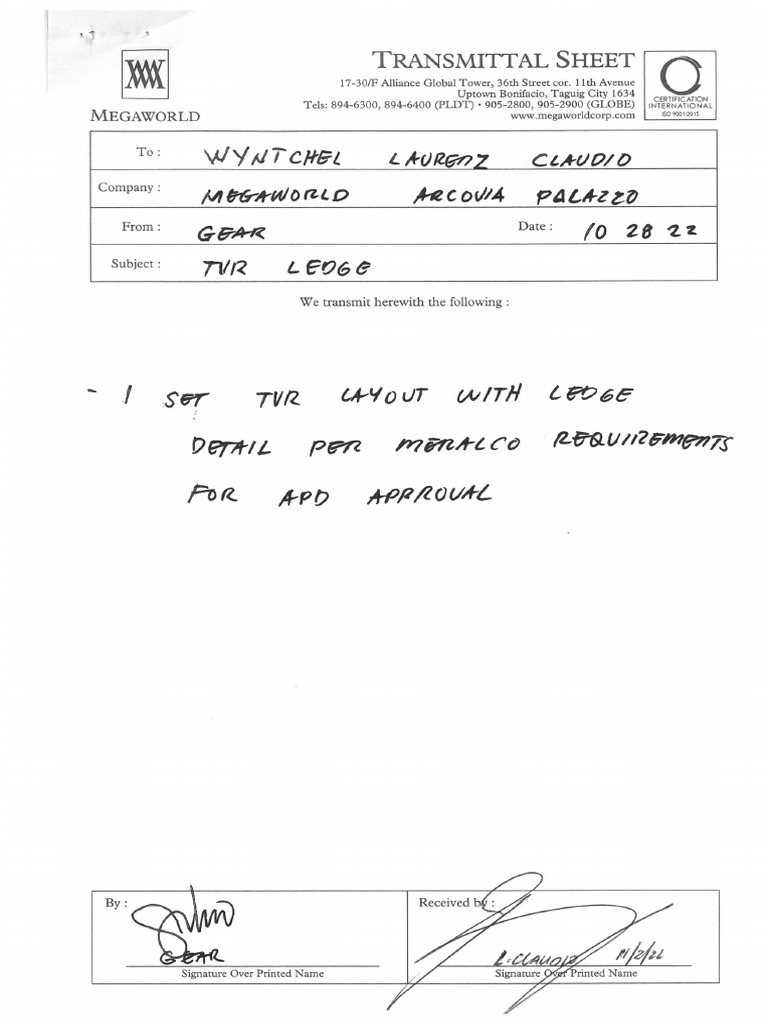 TRANSMITTAL SHEET
17-30/F Alliance Global Tower, 36th Street cor. 11th Avenue
Uptown Bonifacio, Taguig City 1634
Tels: 894-6300, 894-6400 (PLDT) • 905-2800, 905-2900 (GLOBE)
www.megaworldcorp.com
MEGAWORLD
CERTIFICATION
INTERNATIONAL
ISO 9001:2015
To : WYNTCHEL LAURENZ CLAUDIO
Company : MEGAWORLD ARCOVIA PALAZZO
From : GEAR Date : 10 28 22
Subject : TVR LEDGE
We transmit herewith the following :
- 1 SET TVR LAYOUT WITH LEDGE
DETAIL PER MERALCO REQUIREMENTS
FOR APD APPROVAL
By : Received by :
GEAR L. CLAUDIO 11/2/22
Signature Over Printed Name Signature Over Printed Name